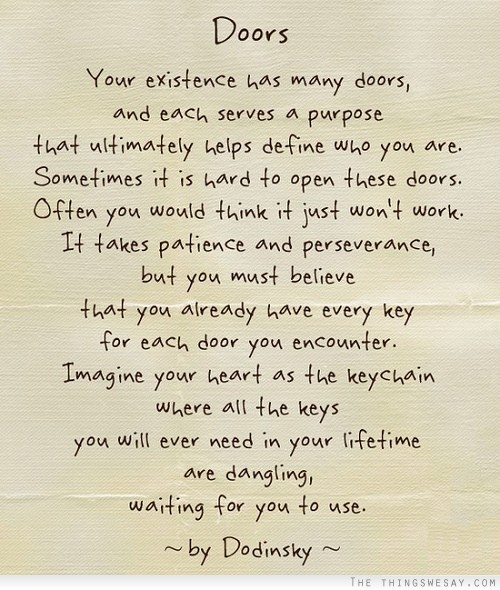 Doors
Your existence has many doors,
and each serves a purpose
that ultimately helps define who you are.
Sometimes it is hard to open these doors.
Often you would think it just won't work.
It takes patience and perseverance,
but you must believe
that you already have every key
for each door you encounter.
Imagine your heart as the keychain
where all the keys
you will ever need in your lifetime
are dangling,
waiting for you to use.
~ by Dodinsky ~
THE THINGSWESAY.COM